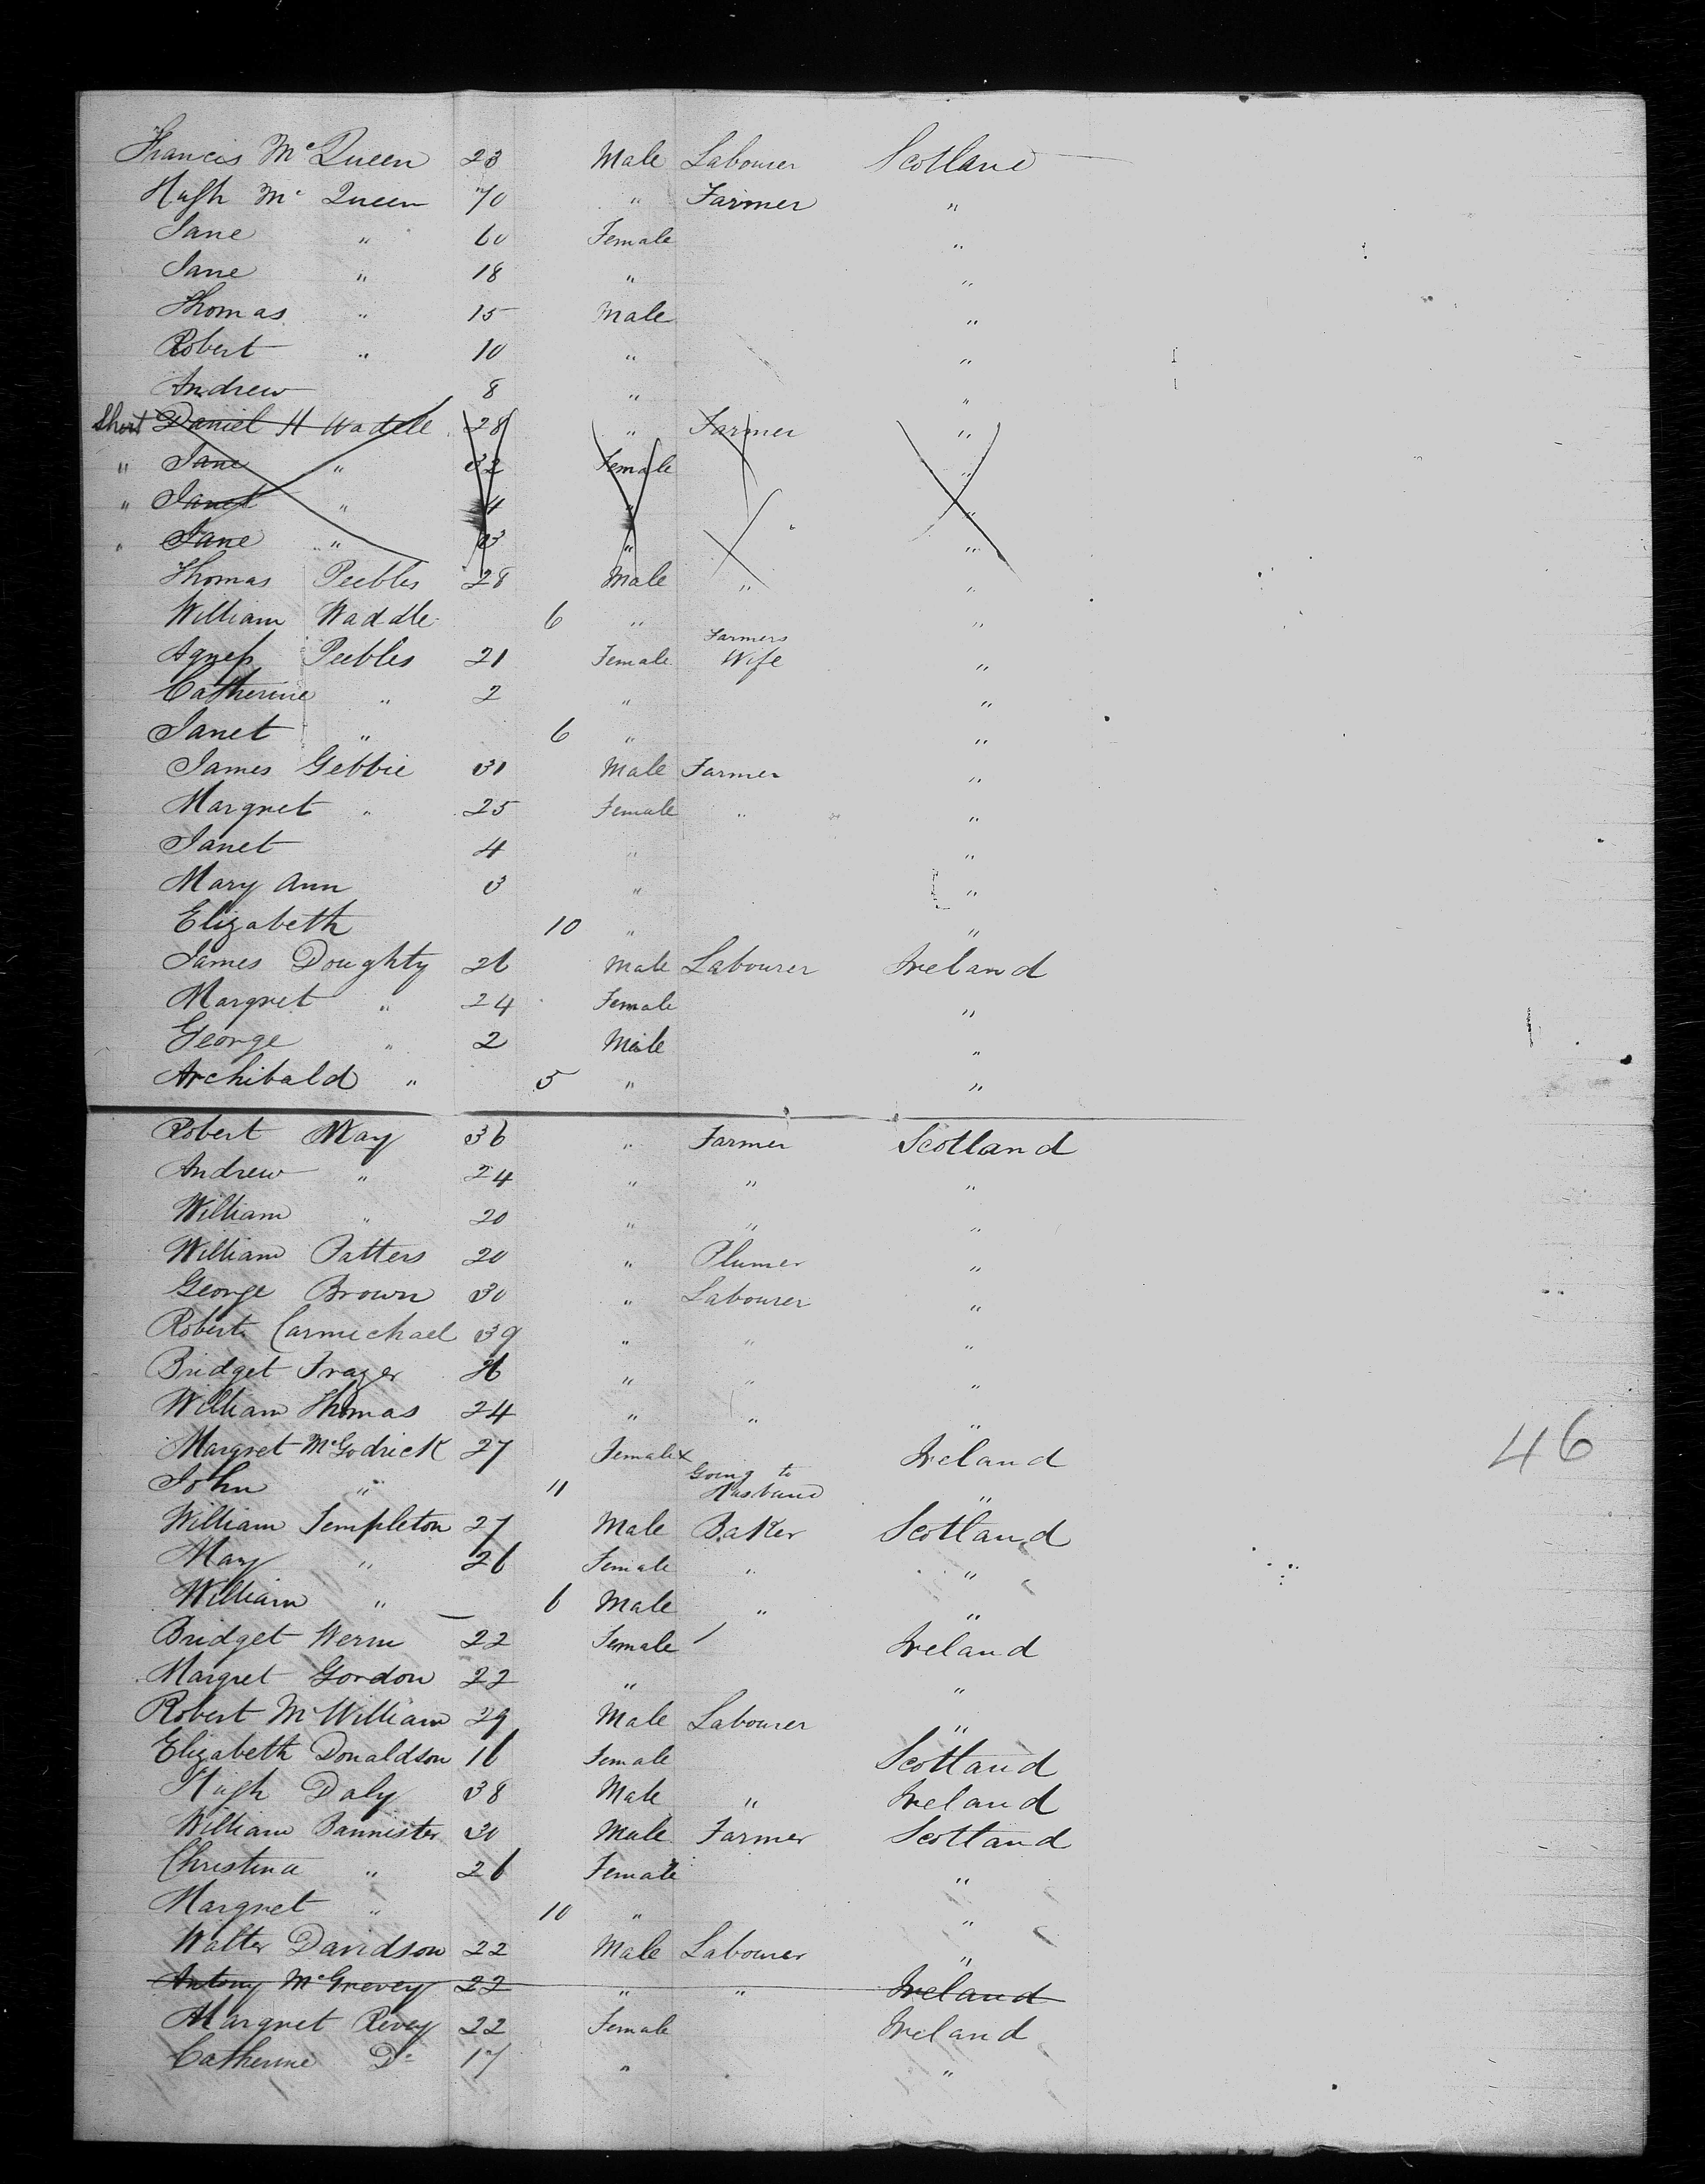 Francis Mc Queen 23 Male Labourer Scotland
Hugh Mc Queen 70 " Farmer "
Jane " 60 Female "
Jane " 18 " "
Thomas " 15 Male "
Robert " 10 " "
Andrew 8 " "
Short Daniel H Waddle 28 " Farmer "
" Jane " 32 Female "
" Janet " 4 " "
" Jane " 3 " "
Thomas Peebles 28 Male " "
William Waddle 6 " "
Agness Peebles 21 Female Farmers Wife "
Catherine " 2 " "
Janet " 6 " "
James Gebbie 31 Male Farmer "
Margret " 25 Female " "
Janet 4 " "
Mary Ann 3 " "
Elizabeth 10 " "
James Doughty 26 Male Labourer Ireland
Margret " 24 Female "
George " 2 Male "
Archibald " 5 " "
Robert May 36 " Farmer Scotland
Andrew " 24 " " "
William " 20 " " "
William Patters 20 " Plumer "
George Brown 30 " Labourer "
Robert Carmichael 39 " " "
Bridget Frazer 26 " " "
William Thomas 24 " " "
Margret McGodrick 27 Female x Ireland
John " 11 Going to Husband "
William Templeton 27 Male Baker Scotland
Mary " 26 Female " "
William " 6 Male " "
Bridget 22 Female Ireland
Margret Gordon 22 " "
Robert McWilliam 29 Male Labourer "
Elizabeth Donaldson 16 Female Scotland
Hugh Daly 38 Male " Ireland
William Bannister 30 Male Farmer Scotland
Christina " 26 Female "
Margret " 10 " "
Walter Davidson 22 Male Labourer "
Antony McGrevey 22 " " Ireland
Margret 22 Female Ireland
Catherine Do 17 " "
46